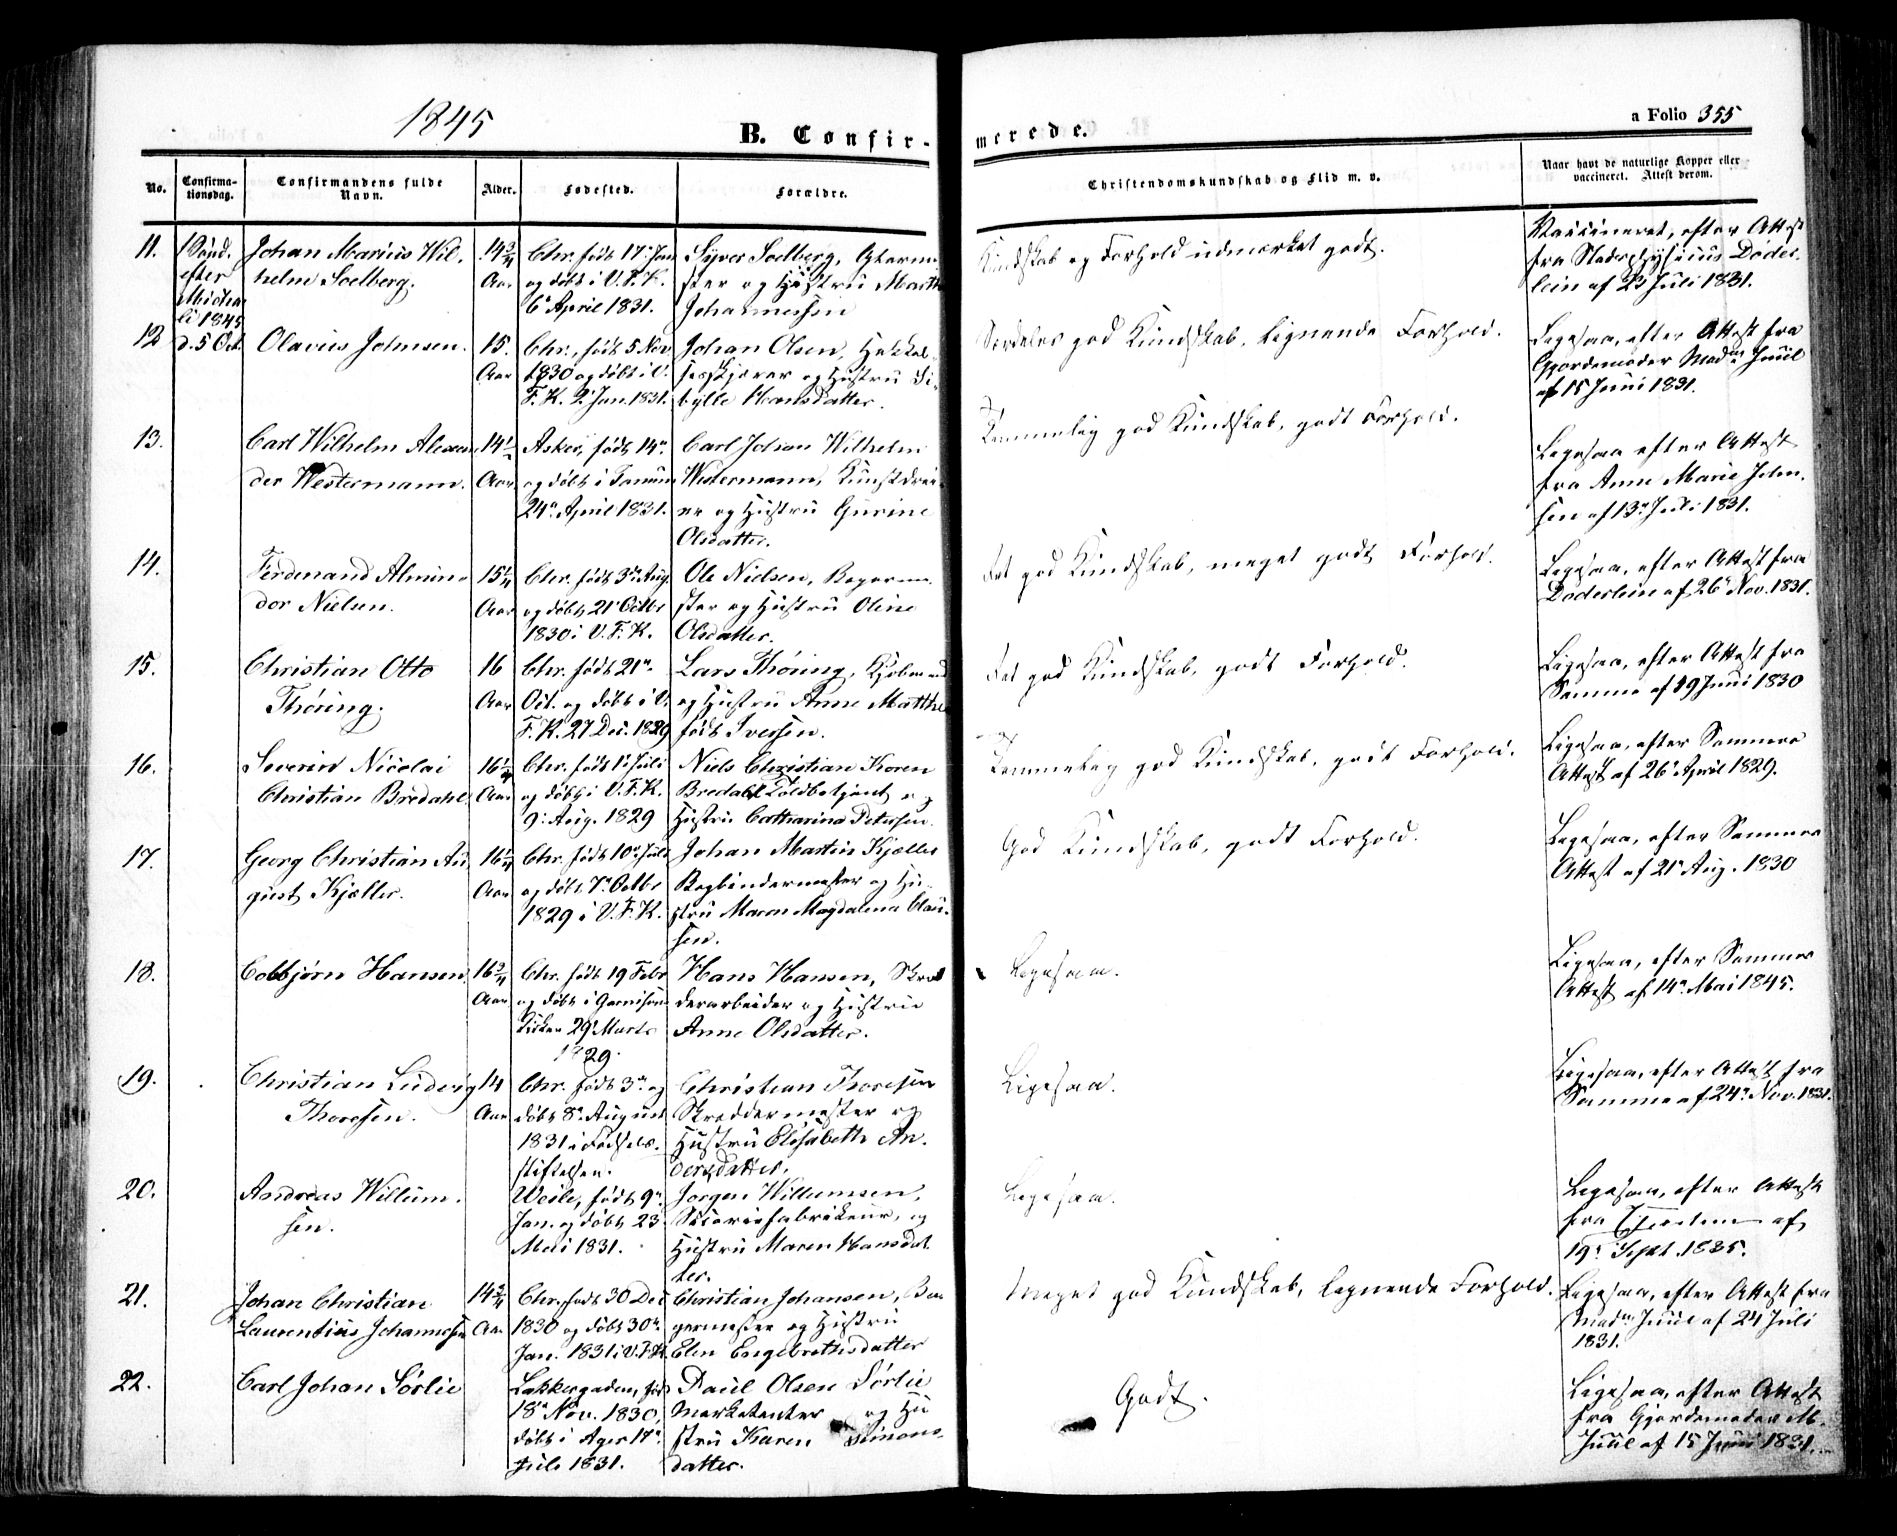 1845
B. Confir-
merede.
a Folio 355
No.
Confirma-
tionsdag.
Confirmandens fulde
Navn.
Alder.
Fødested.
Forældre.
Christendomskundskab og Flid m. v.
Naar havt de naturlige Kopper eller
vaccineret. Attest derom.
11.
1 Sønd.
efter
Michae
li 1845
d. 5 Oct.
Johan Marius Wil-
helm Soelberg.
14 3/4
Aar
Chr. født 17 Jan
og døbt i V. F. K.
6 April 1831.
Syver Soelberg,
ster og Hustru Marth
Johannessen
Kundskab og Forhold udmærket godt.
Vaccineret, efter Attest
fra Stadsphysicus Døder-
lein af 23 Juli 1831.
12
Olavius Johnsen.
15.
Aar
Chr., født 5 Nov.
1830 og døbt i V.
F. K. 2 Jan. 1831.
Johan Olsen, Hakkel-
sesskjærer og Hustru Si-
bylle Hansdatter.
Særdeles god Kundskab, lignende Forhold.
Ligesaa, efter Attest fra
Gjordemoder Madm Juul
af 15 Juni 1831.
13.
Carl Wilhelm Alexan
der Westermann.
14 1/2
Aar.
Asker, født 14n
og døbt i Tanum
24n April 1831.
Carl Johan Wilhelm
Westermann, Kunstdrei-
er og Hustru Gurine
Olsdatter.
Temmelig god Kundskab, godt Forhold.
Ligesaa efter Attest
fra Anne Marie John-
sen af 13n Juli 1831.
14.
Ferdinand Almin-
dor Nielsen.
15 1/4
Aar
Chr. født 3n Aug.
og døbt 21 Octbr
1830 i V. F. K.
Ole Nielsen, Bagerme-
ster og Hustru Oline
Olsdatter.
Ret god Kundskab, meget godt Forhold.
Ligesaa, efter Attest fra
Døderlein af 26 Nov. 1831.
15.
Christian Otto
Thøring.
16
Aar
Chr. født 21n
Oct. og døbt i V.
F. K. 27 Dec. 1829
Lars Thøring, Kjøbmand
og Hustru Anne Matthea
født Iversen.
Ret god Kundskab, godt Forhold.
Ligesaa, efter Attest fra
Samme af 19 Juni 1830
16.
Severin Nicolai
Christian Bredahl
16 1/4
Aar
Chr. født 1 Juli
og døbt i V. F. K.
9 Aug. 1829
Niels Christian Koren
Bredahl Toldbetjent og
Hustru Catharina Petersen.
Temmelig god Kundskab, godt Forhold.
Ligesaa, efter Sammes
Attest af 26 April 1829.
17.
Georg Christian Au
gust Kjæller.
16 1/4
Aar
Chr. født 10 Juli
og døbt 7n Octbr
1829 i V. F. K.
Johan Martin Kjæller
Bogbindermester og Hu-
stru Maren Magdalena Clau-
sen.
God Kundskab, godt Forhold.
Ligesaa, efter Sammes
Attest af 21n Aug. 1830
18.
Colbjørn Hansen
16 3/4
Aar
Chr. født 19 Febr
og døbt i Garnisons
Kirken 29 Marts
1829.
Hans Hansen, Skræd
derarbeider og Hustru
Anne Olsdatter.
Ligesaa.
Ligesaa, efter Sammes
Attest af 14n Mai 1845.
19.
Christian Ludvig
Thoresen.
14
Aar
Chr. født 3n og
døbt 8n August
1831 i Fødsels-
stiftelsen.
Christian Thoresen
Skreddermester og
Hustru Elisabeth An-
dersdatter.
Ligesaa.
Ligesaa, efter Attest fra
Samme af 24n Nov. 1831.
20.
Andreas Willum-
sen.
Weile, født 9n
Jan. og døbt 23
Mai 1831.
Jørgen Willumsen,
og
Hustru Maren Hansdat
ter.
Ligesaa.
Ligesaa, efter Attest
fra af
19n Sept. 1835.
21.
Johan Christian
Laurentius Johannesen
14 3/4
Aar
Chr. født 30 Dec
1830 og døbt 30n
Jan. 1831 i V. F. K.
Christian Johansen, Ba
germester og Hustru
Elen Engebrethsdatter
Meget god Kundskab, lignende Forhold.
Ligesaa, efter Attest fra
Madm Juul af 24 Juli
1831.
22.
Carl Johan Sørlie
Lakkegaden, født
18n Nov. 1830,
døbt i Ager 17n
Juli 1831.
Paul Olsen Sørlie
Marketenter og Hu
stru Karen Simons-
datter.
Godt.
Ligesaa, efter Attest
fra Gjordemoder M.
Juul af 15 Juni 1831.